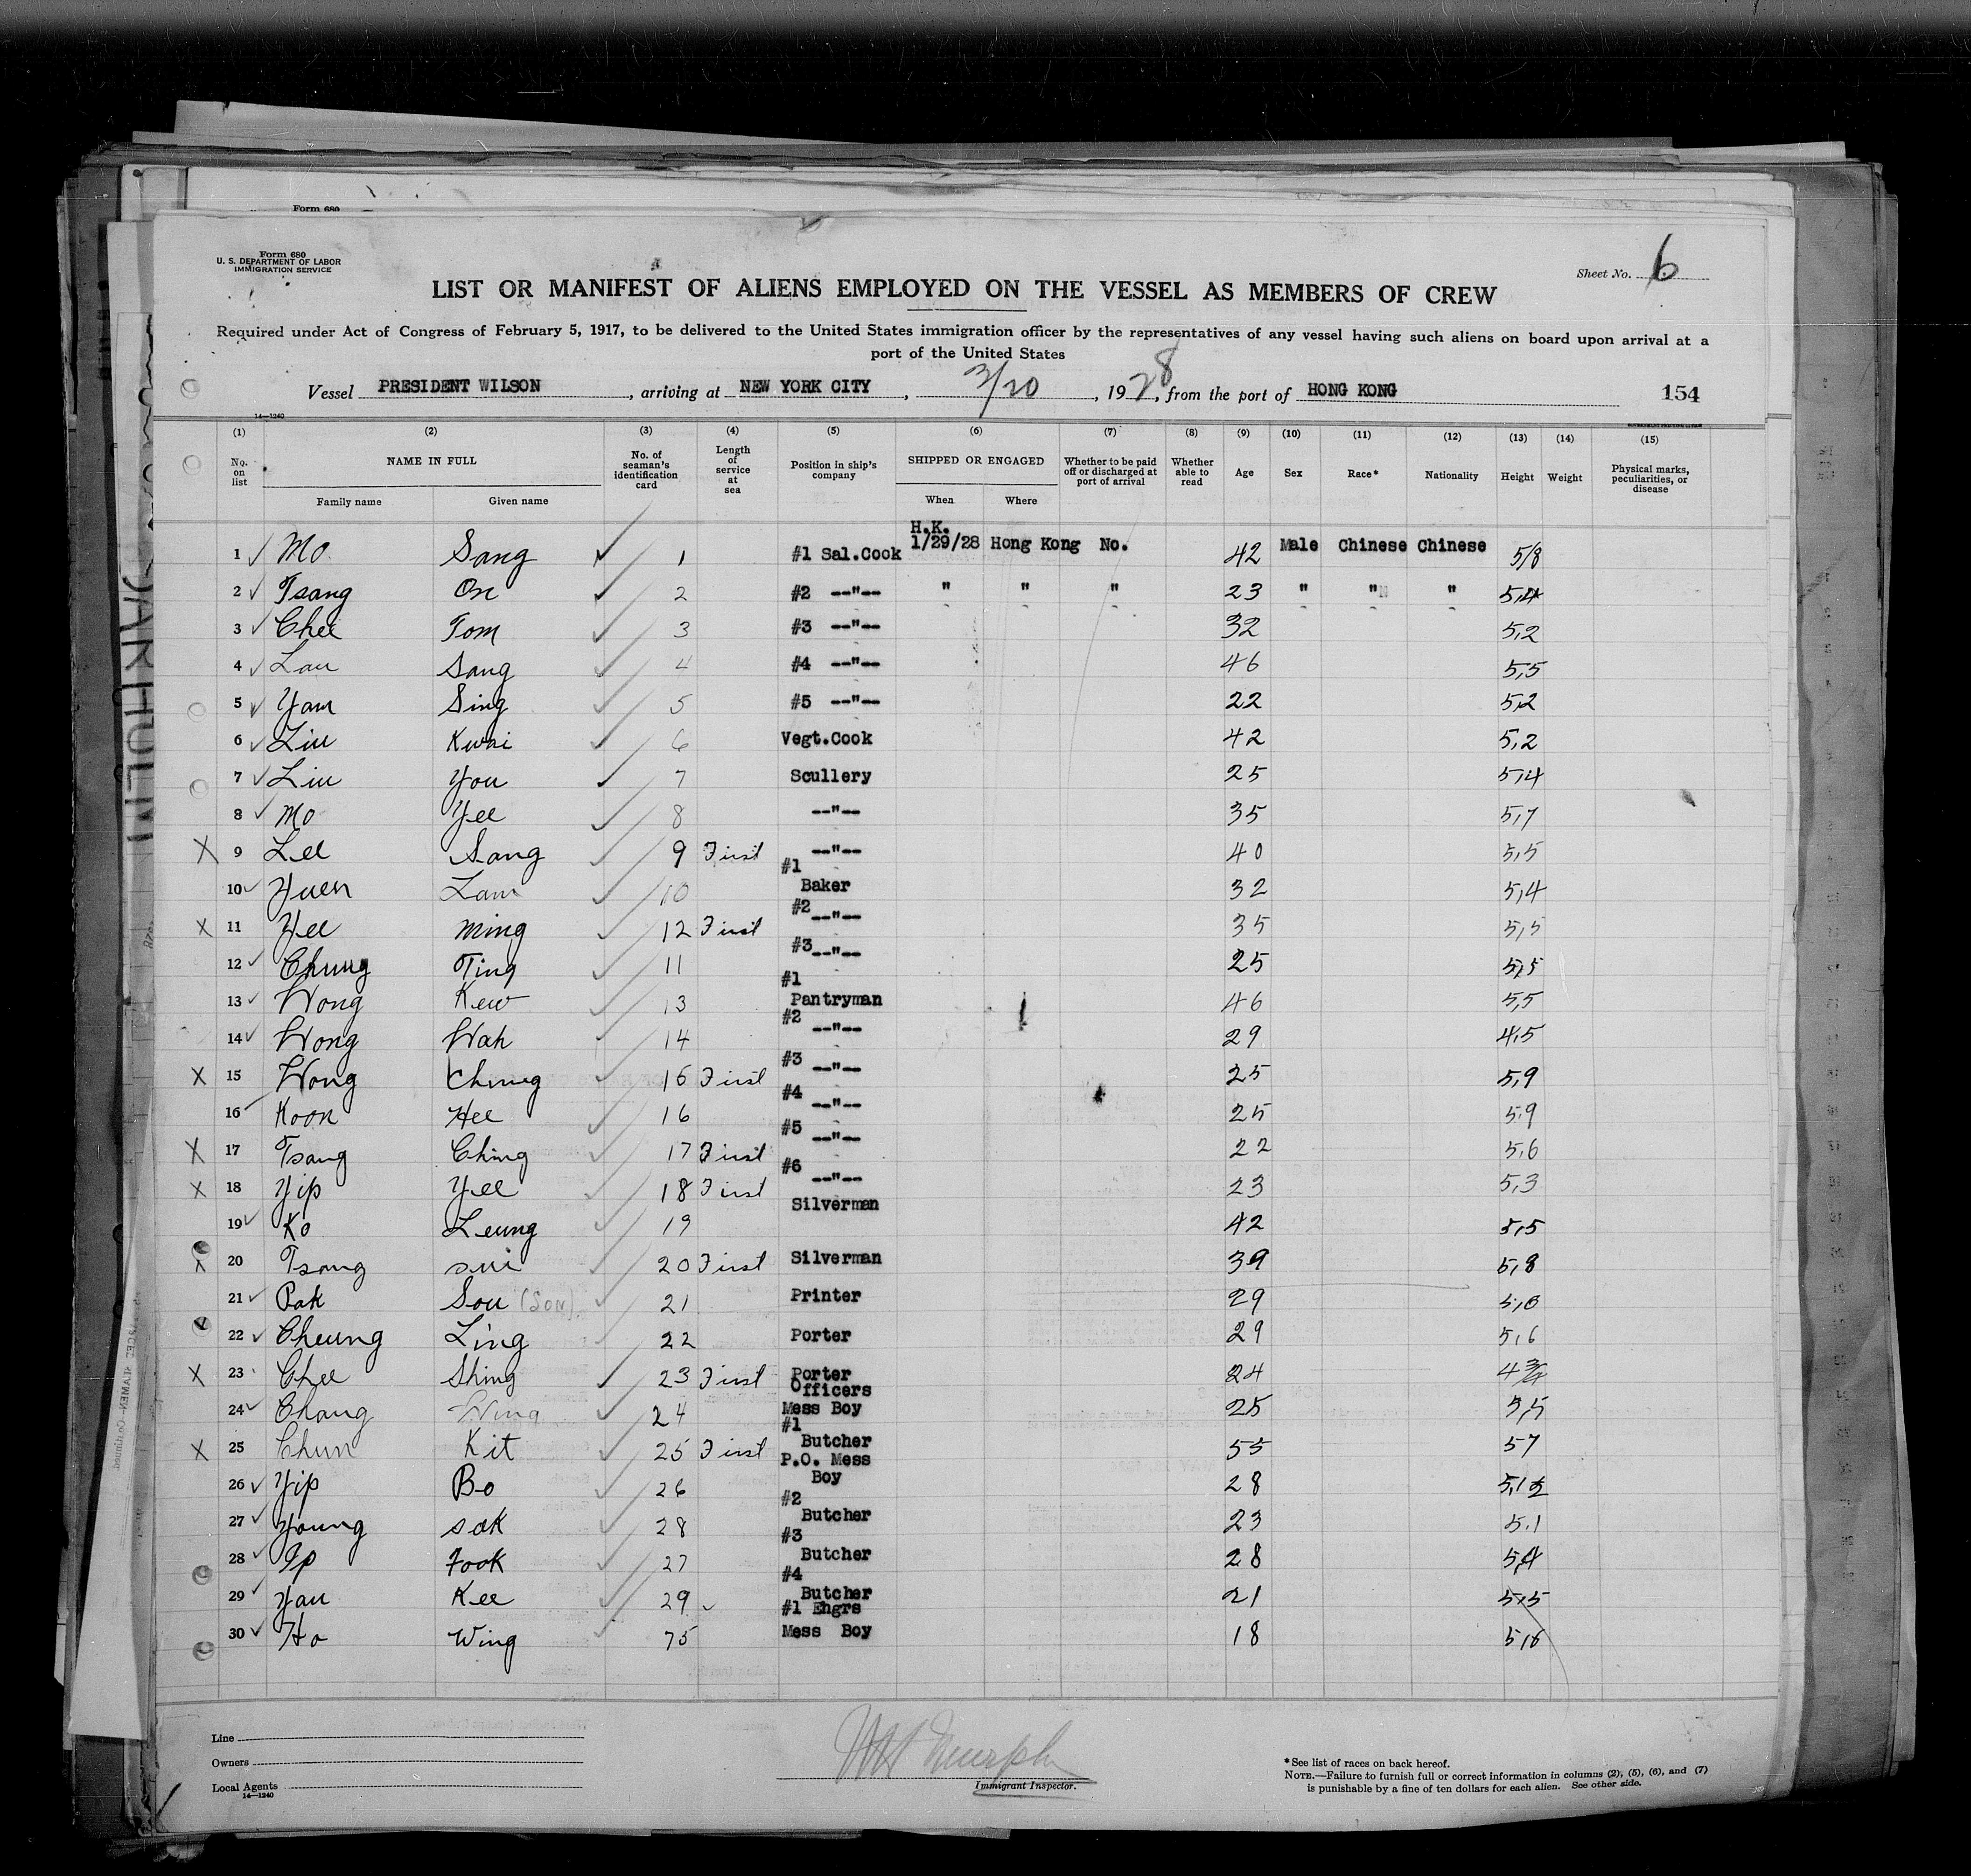 Form 680
Form 680
U. S. DEPARTMENT OF LABOR
IMMIGRATION SERVICE
Sheet No. 6
LIST OR MANIFEST OF ALIENS EMPLOYED ON THE VESSEL AS MEMBERS OF CREW
Required under Act of Congress of February 5, 1917, to be delivered to the United States immigration officer by the representatives of any vessel having such aliens on board upon arrival at a
port of the United States
Vessel PRESIDENT WILSON, arriving at NEW YORK CITY, 3/20, 1928, from the port of HONG KONG 154
14—1240
(1) (2) (3) (4) (5) (6) (7) (8) (9) (10) (11) (12) (13) (14) (15)
No. on list NAME IN FULL Family name Given name No. of seaman's identification card Length of service at sea Position in ship's company SHIPPED OR ENGAGED When Where Whether to be paid off or discharged at port of arrival Whether able to read Age Sex Race* Nationality Height Weight Physical marks, peculiarities, or disease
1 Mo Sang 1 #1 Sal.Cook H.K. 1/29/28 Hong Kong No. 42 Male Chinese Chinese 5/8
2 Tsang On 2 #2 --"-- " " " 23 " " " 5,4
3 Chee Tom 3 #3 --"-- 32 5,2
4 Lau Sang 4 #4 --"-- 46 5,5
5 Yam Sing 5 #5 --"-- 22 5,2
6 Liu Kwai 6 Vegt.Cook 42 5,2
7 Liu You 7 Scullery 25 5,4
8 Mo Yee 8 --"-- 35 5,7
X 9 Lee Sang 9 First --"-- 40 5,5
10 Yuen Lam 10 #1 Baker 32 5,4
X 11 Yee Ming 12 First #2 --"-- 35 5,5
12 Chung Ting 11 #3 --"-- 25 5,5
13 Wong Kew 13 #1 Pantryman 46 5,5
14 Wong Wah 14 #2 --"-- 29 4,5
X 15 Wong Chung 15 First #3 --"-- 25 5,9
16 Koon Hee 16 #4 --"-- 25 5,9
X 17 Tsang Ching 17 First #5 --"-- 22 5,6
X 18 Yip Yee 18 First #6 --"-- 23 5,3
19 Ko Leung 19 Silverman 42 5,5
X 20 Tsang Sui 20 First Silverman 39 5,8
21 Pak Sou (SON) 21 Printer 29 5,6
22 Cheung Ling 22 Porter 29 5,6
X 23 Chee Shing 23 First Porter 24 4
24 Chang Wing 24 Officers Mess Boy 25 5,5
X 25 Chun Kit 25 First #1 Butcher 55 57
26 Yip Bo 26 P.O. Mess Boy 28 5,1½
27 Young Sak 28 #2 Butcher 23 5,1
28 Ip Fook 27 #3 Butcher 28 5,4
29 Yau Kee 29 #4 Butcher 21 5,5
30 Ho Wing 75 #1 Engrs Mess Boy 18 5,6
Line
Owners
Local Agents
14—1240
Murphy
Immigrant Inspector.
*See list of races on back hereof.
NOTE.—Failure to furnish full or correct information in columns (2), (5), (6), and (7)
is punishable by a fine of ten dollars for each alien. See other side.